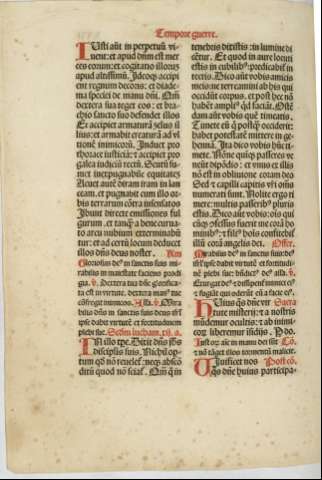 Tempore guerre.
Iusti aūt in perpetuū vi-
uent: et apud dn̄m est mer
ces eorum: et cogitatio illorum
apud altissimū. Ideoqz accipi
ent regnum decoris: et diade-
ma speciei de manu dn̄i. Qm̄
dextera sua teget eos: et bra-
chio sancto suo defendet illos
Et accipiet armaturā zelus il
lius: et armabit creaturā ad vl
tionē inimicorū. Induet pro
thorace iusticiā: et accipiet pro
galea iudiciū certū. Sumet scu-
tū inexpugnabile equitatem
Acuet autē diram iram in lan
ceam. et pugnabit cum illo or-
bis terrarum cōtra insensatos
Ibunt directe emissiones ful
gurum. et tanqz a bene curua-
to arcu nubium exterminabū
tur: et ad certū locum deducet
illos dn̄s deus noster.
Gloriosus deus in sanctis suis mi-
rabilis in maiestate faciens prodi
gia. v̄. Dextera tua dn̄e glorifica-
ta est in virtute. dextera manus tua
cōfregit inimicos. Alla. v̄. Mira
bilis deus in sanctis suis: deus isrl̄
ipse dabit virtutē et fortitudinem
plebi sue. Scd̄m lucham.
In illo tpe. Dixit dn̄s ihs
discipulis suis. Nichil op-
tum qd̄ nō reueletur: neqz abscō
ditū quod nō sciatur. Qm̄ q̄ in
tenebris dixistis: in lumine di
centur. Et quod in aure locuti
estis in cubilibus: predicabitur in
tectis. Dico aūt vobis amicis
meis: ne terreamini ab his qui
occidūt corpus. et post hec nō
habēt amplius qd̄ faciāt. Ostē
dam aūt vobis quē timeatis.
Timete eū q̄ postqz occiderit:
habet potestatē mittere in ge-
henna. Ita dico vobis hūc ti-
mete. Nōne quiqz passeres ve
neūt dipōdio: et vnus ex illis
nō est in obliuione coram deo
Sed et capilli capitis vestri oēs
numerati sunt. Nolite ergo ti
mere: multis passeribus pluris
estis. Dico aūt vobis: ois qui
cūqz cōfessus fuerit me corā ho
minibus: et filius hoīs confitebitur
illū corā angelis dei. Offer.
Mirabilis deus in sanctis suis: deus
isrl̄ ipse dabit virtutē et fortitudi-
nē plebi sue: bn̄dictus deus alla. v̄.
Exurgat deus et dissipentur inimici eius
et fugiāt qui oderūt eū a facie eius.
Huius qs̄ dn̄e virtute Secreta
mysterii: et a nostris
mūdemur occultis: et ab inimi-
corum liberemur insidiis. P do.
Iustorum aīe in manu dei sūt Cō.
et nō tāget illos tormentū malicie.
Viuificet nos Postcō.
qs̄ dn̄e huius participa-